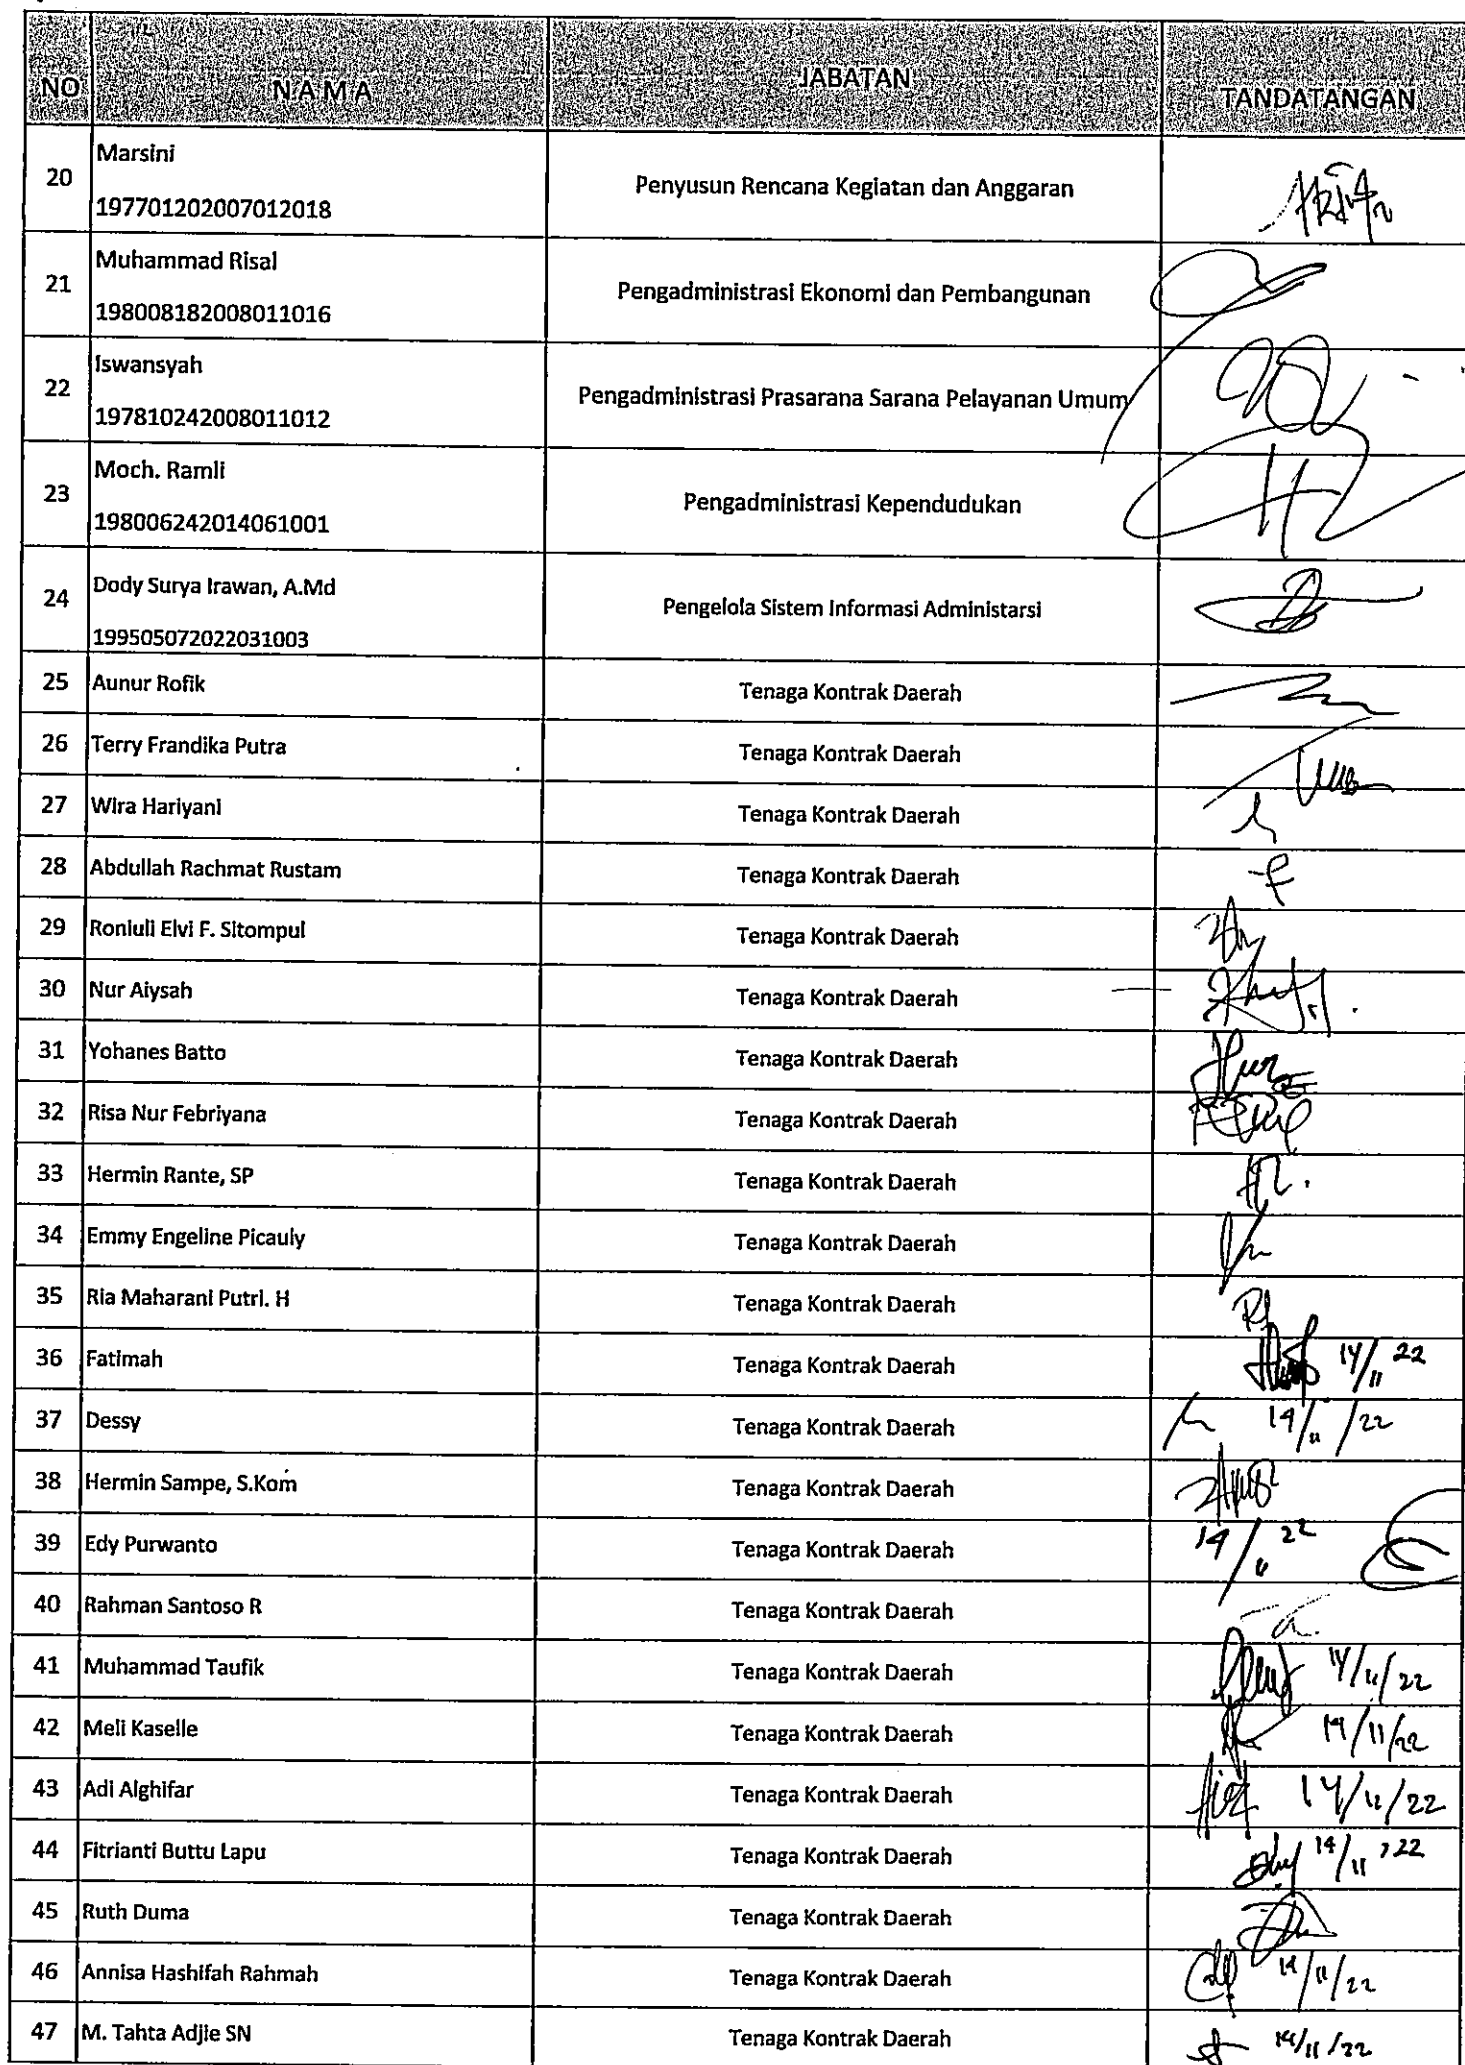 NO NAMA JABATAN TANDATANGAN
20 Marsini
197701202007012018 Penyusun Rencana Kegiatan dan Anggaran
21 Muhammad Risal
198008182008011016 Pengadministrasi Ekonomi dan Pembangunan
22 Iswansyah
197810242008011012 Pengadministrasi Prasarana Sarana Pelayanan Umum
23 Moch. Ramli
198006242014061001 Pengadministrasi Kependudukan
24 Dody Surya Irawan, A.Md
199505072022031003 Pengelola Sistem Informasi Administarsi
25 Aunur Rofik Tenaga Kontrak Daerah
26 Terry Frandika Putra Tenaga Kontrak Daerah
27 Wira Hariyani Tenaga Kontrak Daerah
28 Abdullah Rachmat Rustam Tenaga Kontrak Daerah
29 Roniuli Elvi F. Sitompul Tenaga Kontrak Daerah
30 Nur Aiysah Tenaga Kontrak Daerah
31 Yohanes Batto Tenaga Kontrak Daerah
32 Risa Nur Febriyana Tenaga Kontrak Daerah
33 Hermin Rante, SP Tenaga Kontrak Daerah
34 Emmy Engeline Picauly Tenaga Kontrak Daerah
35 Ria Maharani Putri. H Tenaga Kontrak Daerah
36 Fatimah Tenaga Kontrak Daerah 14/11 22
37 Dessy Tenaga Kontrak Daerah 14/11/22
38 Hermin Sampe, S.Kom Tenaga Kontrak Daerah
39 Edy Purwanto Tenaga Kontrak Daerah 14/11 22
40 Rahman Santoso R Tenaga Kontrak Daerah
41 Muhammad Taufik Tenaga Kontrak Daerah 14/11/22
42 Meli Kaselle Tenaga Kontrak Daerah 14/11/22
43 Adi Alghifar Tenaga Kontrak Daerah 14/11/22
44 Fitrianti Buttu Lapu Tenaga Kontrak Daerah 14/11 '22
45 Ruth Duma Tenaga Kontrak Daerah
46 Annisa Hashifah Rahmah Tenaga Kontrak Daerah 14/11/22
47 M. Tahta Adjie SN Tenaga Kontrak Daerah 14/11/22